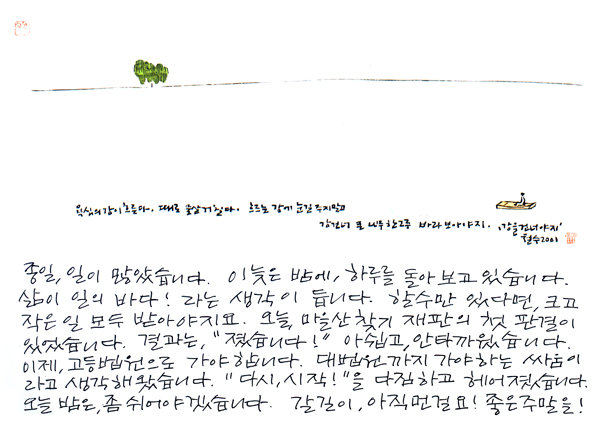 욕심의 강이 흐른다. 때로 물살 거칠다. 흐르는 강에 눈길 주지말고
강건너 푸른 나무 한그루 바라보아야지. '강을 건너야지'
철수 2001
종일, 일이 많았습니다. 이 늦은 밤에, 하루를 돌아보고 있습니다.
삶이 일의 바다! 라는 생각이 듭니다. 할수만 있다면, 크고
작은 일 모두 받아야지요. 오늘, 마을산 찾기 재판의 첫 판결이
있었습니다. 결과는, "졌습니다!" 아쉽고, 안타까웠습니다.
이제, 고등법원으로 가야 합니다. 대법원까지 가야하는 싸움이
라고 생각해왔습니다. "다시, 시작!"을 다짐하고 헤어졌습니다.
오늘 밤은, 좀 쉬어야겠습니다. 갈길이, 아직 먼걸요! 좋은 주말을!